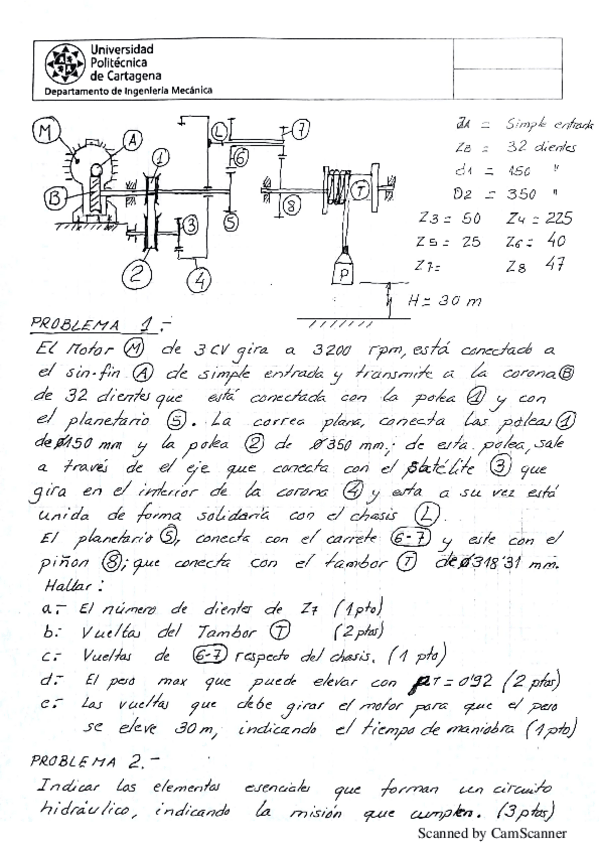 Universidad
Politécnica
de Cartagena
Departamento de Ingeniería Mecánica
M
A
B
1
2
3
4
5
6
L
7
8
T
P
H = 30 m
Z1 = Simple entrada
Z2 = 32 dientes
d1 = 150 "
D2 = 350 "
Z3 = 50 Z4 = 225
Z5 = 25 Z6 = 40
Z7 = Z8 47
PROBLEMA 1.-
El Motor M de 3 CV gira a 3200 rpm, está conectado a
el sin-fin A de simple entrada y transmite a la corona B
de 32 dientes que está conectada con la polea 1 y con
el planetario 5. La correa plana, conecta las poleas 1
de Ø150 mm y la polea 2 de Ø350 mm; de esta polea, sale
a través de el eje que conecta con el satélite 3 que
gira en el interior de la corona 4 y esta a su vez está
unida de forma solidaria con el chasis L.
El planetario 5, conecta con el carrete 6-7 y este con el
piñon 8; que conecta con el tambor T de Ø318'31 mm.
Hallar:
a.- El número de dientes de Z7 (1 pto)
b.- Vueltas del Tambor T (2 ptos)
c.- Vueltas de 6-7 respecto del chasis. (1 pto)
d.- El peso max que puede elevar con μT = 0'92 (2 ptos)
e.- Las vueltas que debe girar el motor para que el peso
se eleve 30 m, indicando el tiempo de maniobra (1 pto)
PROBLEMA 2.-
Indicar los elementos esenciales que forman un circuito
hidráulico, indicando la misión que cumplen. (3 ptos)
Scanned by CamScanner